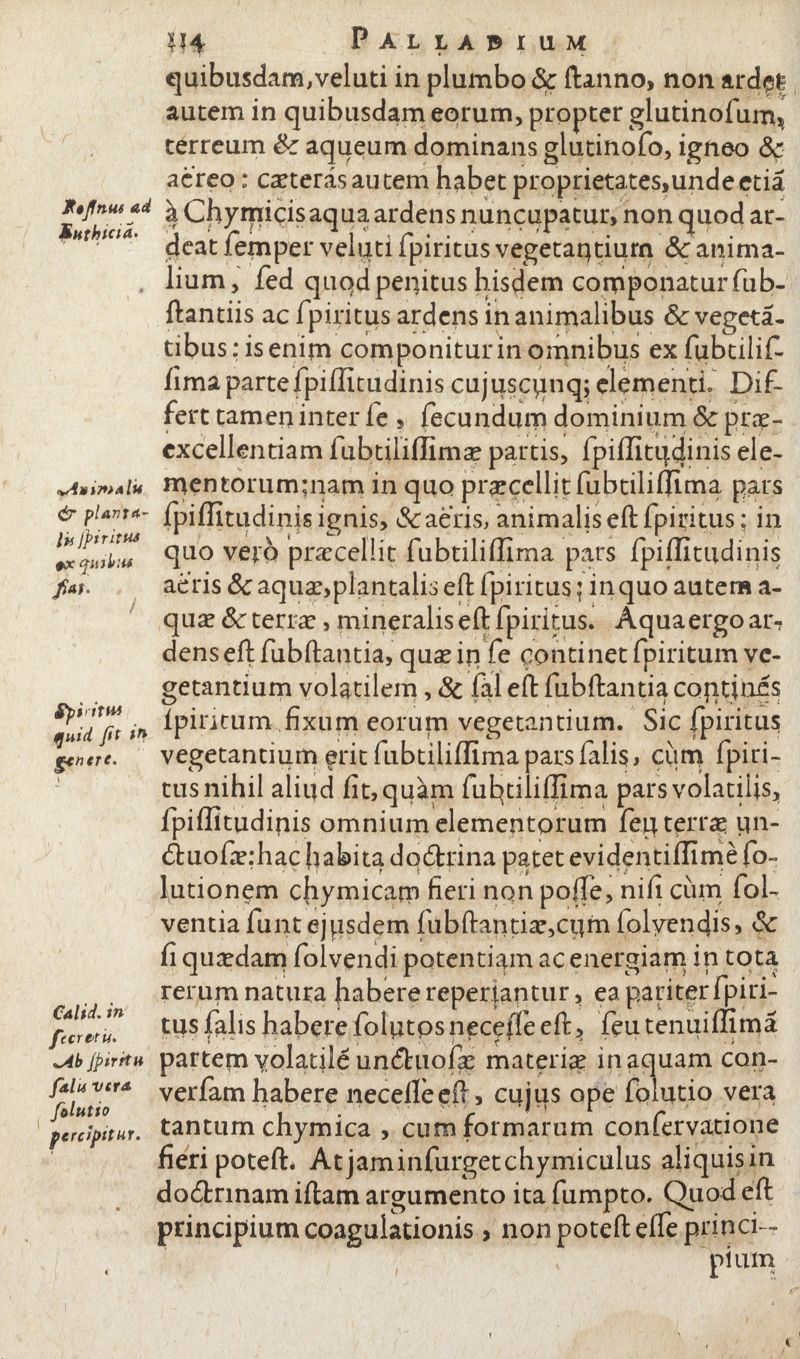 114 PALLADIUM
quibusdam, veluti in plumbo & ſtanno, non ardet
autem in quibusdam eorum, propter glutinoſum,
terreum & aqueum dominans glutinoſo, igneo &
aëreo: cæterás autem habet proprietates, unde etiã
Roſinus ad
Euthiciã.
à Chymicis aqua ardens nuncupatur, non quod ar-
deat ſemper veluti ſpiritus vegetantium & anima-
lium, ſed quod penitus hisdem componatur ſub-
ſtantiis ac ſpiritus ardens in animalibus & vegetã-
tibus: is enim componitur in omnibus ex ſubtiliſ-
ſima parte ſpiſſitudinis cujuscunq; elementi. Dif-
fert tamen inter ſe, ſecundum dominium & præ-
excellentiam ſubtiliſſimæ partis, ſpiſſitudinis ele-
Animalis
& planta-
lis ſpiritus
ex quibus
fiat.
mentorum; nam in quo præcellit ſubtiliſſima pars
ſpiſſitudinis ignis, & aëris, animalis eſt ſpiritus; in
quo verò præcellit ſubtiliſſima pars ſpiſſitudinis
aëris & aquæ, plantalis eſt ſpiritus; in quo autem a-
quæ & terræ, mineralis eſt ſpiritus. Aqua ergo ar-
dens eſt ſubſtantia, quæ in ſe continet ſpiritum ve-
getantium volatilem, & ſal eſt ſubſtantia continẽs
Spiritus
quid ſit in
genere.
ſpiritum fixum eorum vegetantium. Sic ſpiritus
vegetantium erit ſubtiliſſima pars ſalis, cùm ſpiri-
tus nihil aliud ſit, quàm ſubtiliſſima pars volatilis,
ſpiſſitudinis omnium elementorum ſeu terræ un-
ctuoſæ: hac habita doctrina patet evidentiſſimè ſo-
lutionem chymicam fieri non poſſe, niſi cùm ſol-
ventia ſunt ejusdem ſubſtantiæ, cum ſolvendis, &
ſi quædam ſolvendi potentiam ac energiam in tota
rerum natura habere reperiantur, ea pariter ſpiri-
Calid. in
ſecretis.
Ab ſpiritu
ſalis vera
ſolutio
percipitur.
tus ſalis habere ſolutos neceſſe eſt, ſeu tenuiſſimã
partem volatilẽ unctuoſæ materiæ in aquam con-
verſam habere neceſſe eſt, cujus ope ſolutio vera
tantum chymica, cum formarum conſervatione
fieri poteſt. At jam inſurget chymiculus aliquis in
doctrinam iſtam argumento ita ſumpto. Quod eſt
principium coagulationis, non poteſt eſſe princi-
pium